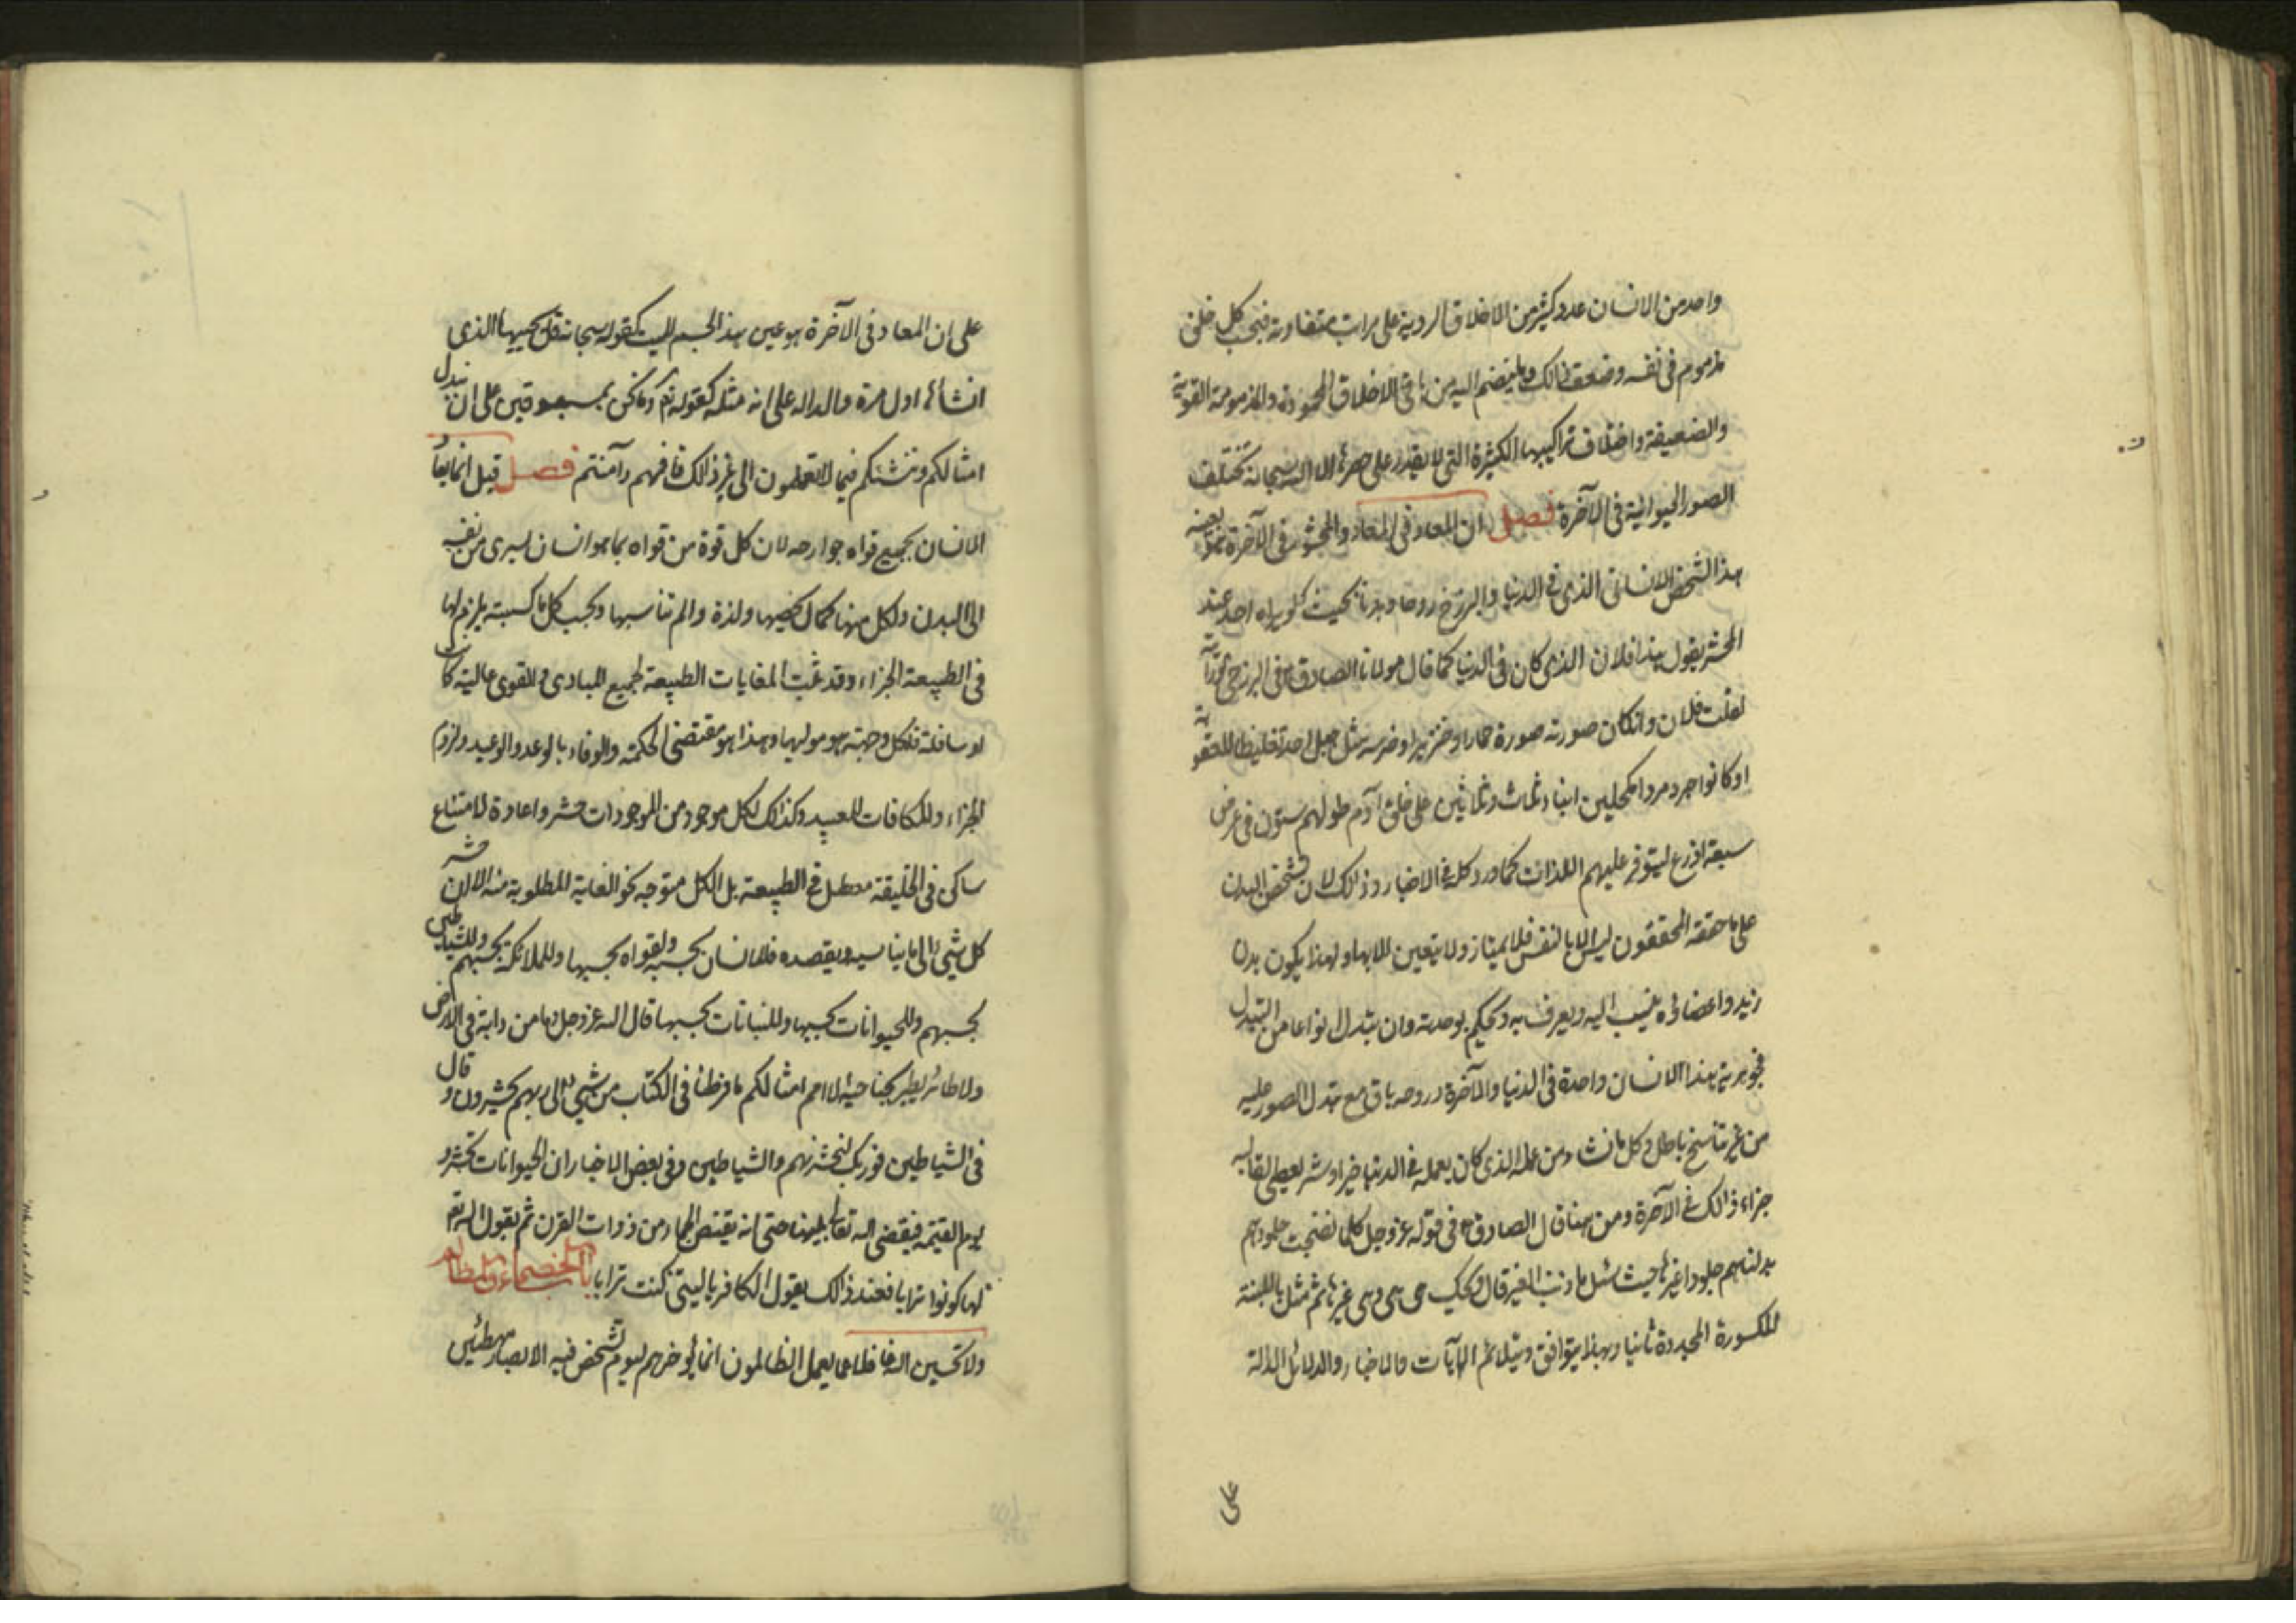 واحد من الانسان عدد كثير من الاخلاق الردية على مراتب متفاوتة فبحسب كل خلق
مذموم فى نفسه وضعف ذالك وما ينضم اليه من باقى الاخلاق المحمودة والمذمومة القوية
والضعيفة واختلاف تراكيبها الكثيرة التى لا يقدر على حصرها الا الله سبحانه تختلف
الصور الحيوانية فى الآخرة فصل ان المعاد فى المعاد والمحشور فى الآخرة بعينه
هذا الشخص الانسانى الذى فى الدنيا والبرزخ روحا وبدنا بحيث لو يراه احد عند
المحشر يقول هذا فلان الذى كان فى الدنيا كما قال مولانا الصادق ع فى البرزخى لو رأيته
لقلت فلان وانكان صورته صورة حمار او خنزير او ضرسه مثل جبل احد تغليظا للعقوبة
او كانوا جرد مرد مكحلين ابناء ثلاث وثلاثين على خلق آدم طولهم ستون فى عرض
سبعة اذرع ليتوفر عليهم اللذات كما ورد كله فى الاخبار وذالك لان تشخص البدن
على ما حققه المحققون ليس الا بالنفس فلا يمتاز ولا يتعين الا بها ولهذا يكون بدن
زيد واعضاؤه ينسب اليه ويعرف به ويحكم بوحدته وان يتبدل انواعا من التبدل
فجوهرية هذا الانسان واحدة فى الدنيا والآخرة وروحه باق مع تبدل الصور عليه
من غير تناسخ باطل وكل ما نشاء من عمله الذى كان يعمله فى الدنيا خيرا وشر يعطى لقالبه
جزاء ذالك فى الآخرة ومن هنا قال الصادق ع فى قوله عز وجل كلما نضجت جلودهم
بدلناهم جلودا غيرها حيث سئل ما ذنب الغير قال ويحك هى هى وهى غيرها ثم مثل باللبنة
المكسورة المجددة ثانيا وبهذا يتوافق ويتلائم الآيات والاخبار والدلائل الدالة
على
على ان المعاد فى الآخرة هو عين هذا الجسم الميت كقوله سبحانه قل يحييها الذى
انشأها اول مرة والداله على انه مثله كقوله تع وما نحن بمسبوقين على ان نبدل
امثالكم وننشئكم فيما لا تعلمون الى غير ذالك فافهم وآمنتم فصل قيل انما يعاد
الانسان بجميع قواه جوارحه لان كل قوة من قواه بما هو انسان يسرى من نفسه
الى البدن ولكل منها كمال يخصها ولذة والم تناسبها وبحسب كل ما كسبته يلزم لها
فى الطبيعة الجزاء وقد ثبت الغايات الطبيعة لجميع المبادى والقوى عالية كانت
او سافلة فلكل وجهة هو موليها وهذا هو مقتضى الحكمة والوفاء بالوعد والوعيد ولزوم
الجزاء والمكافات للعبيد وكذاك لكل موجود من الموجودات حشر واعادة لامتناع
ساكن فى الخليقة معطل فى الطبيعة بل الكل متوجه نحو الغاية المطلوبة منه الا ان حشر
كل شئ الى ما يناسبه ويقصده فللانسان بحسبه ولقواه بحسبها وللملائكة بحسبهم وللشياطين
بحسبهم وللحيوانات بحسبها وللنباتات بحسبها قال الله عز وجل وما من دابة فى الارض
ولا طائر يطير بجناحيه الا امم امثالكم ما فرطنا فى الكتاب من شئ ثم الى ربهم يحشرون وقال
فى الشياطين فوربك لنحشرنهم والشياطين وفى بعض الاخبار ان الحيوانات تحشر
يوم القيمة فيقضى الله تعالى بينها حتى انه يقتص للجماء من ذوات القرن ثم يقول الله تع
لها كونوا ترابا فعند ذالك يقول الكافر يا ليتنى كنت ترابا باب الخصماء والمظالم
ولا تحسبن الله غافلا عما يعمل الظالمون انما يؤخرهم ليوم تشخص فيه الابصار مهطعين